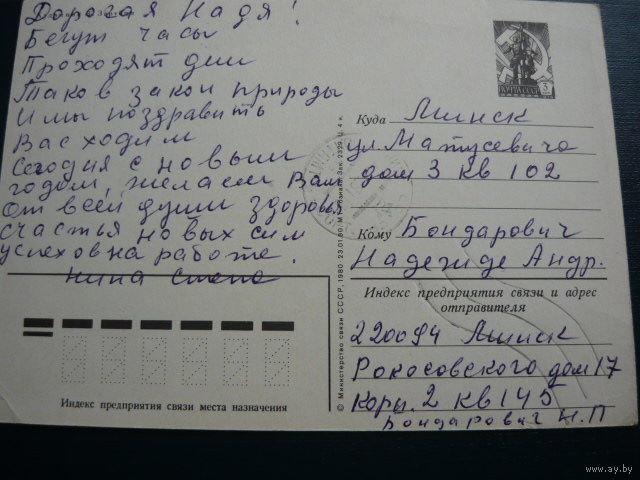 Дорогая Надя!
Бегут часы
Проходят дни
Таков закон природы
И мы поздравить
Вас ходим
Сегодня с новым
годом, желаем Вам
От всей души здоровья
счастья новых сил
успехов на работе.
Нина
ПОЧТА СССР
3
Куда Минск
ул. Матусевича
дом 3 кв 102
Кому Бондарович
Надежде Андр.
Индекс предприятия связи и адрес
отправителя
220094 Минск
Рокосовского дом 17
Корп. 2 кв 145
Бондарович Н.П
Индекс предприятия связи места назначения
© Министерство связи СССР, 1980. 23.01.80.
www.ay.by